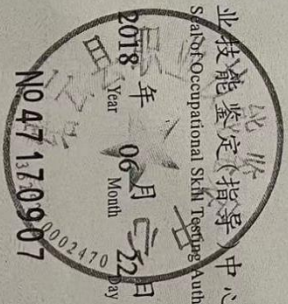 业技能鉴定(指导)中心
Seal of Occupational Skill Testing Auth
2018 年 06 月 22 日
Year Month Day
NO 47170907
0002470